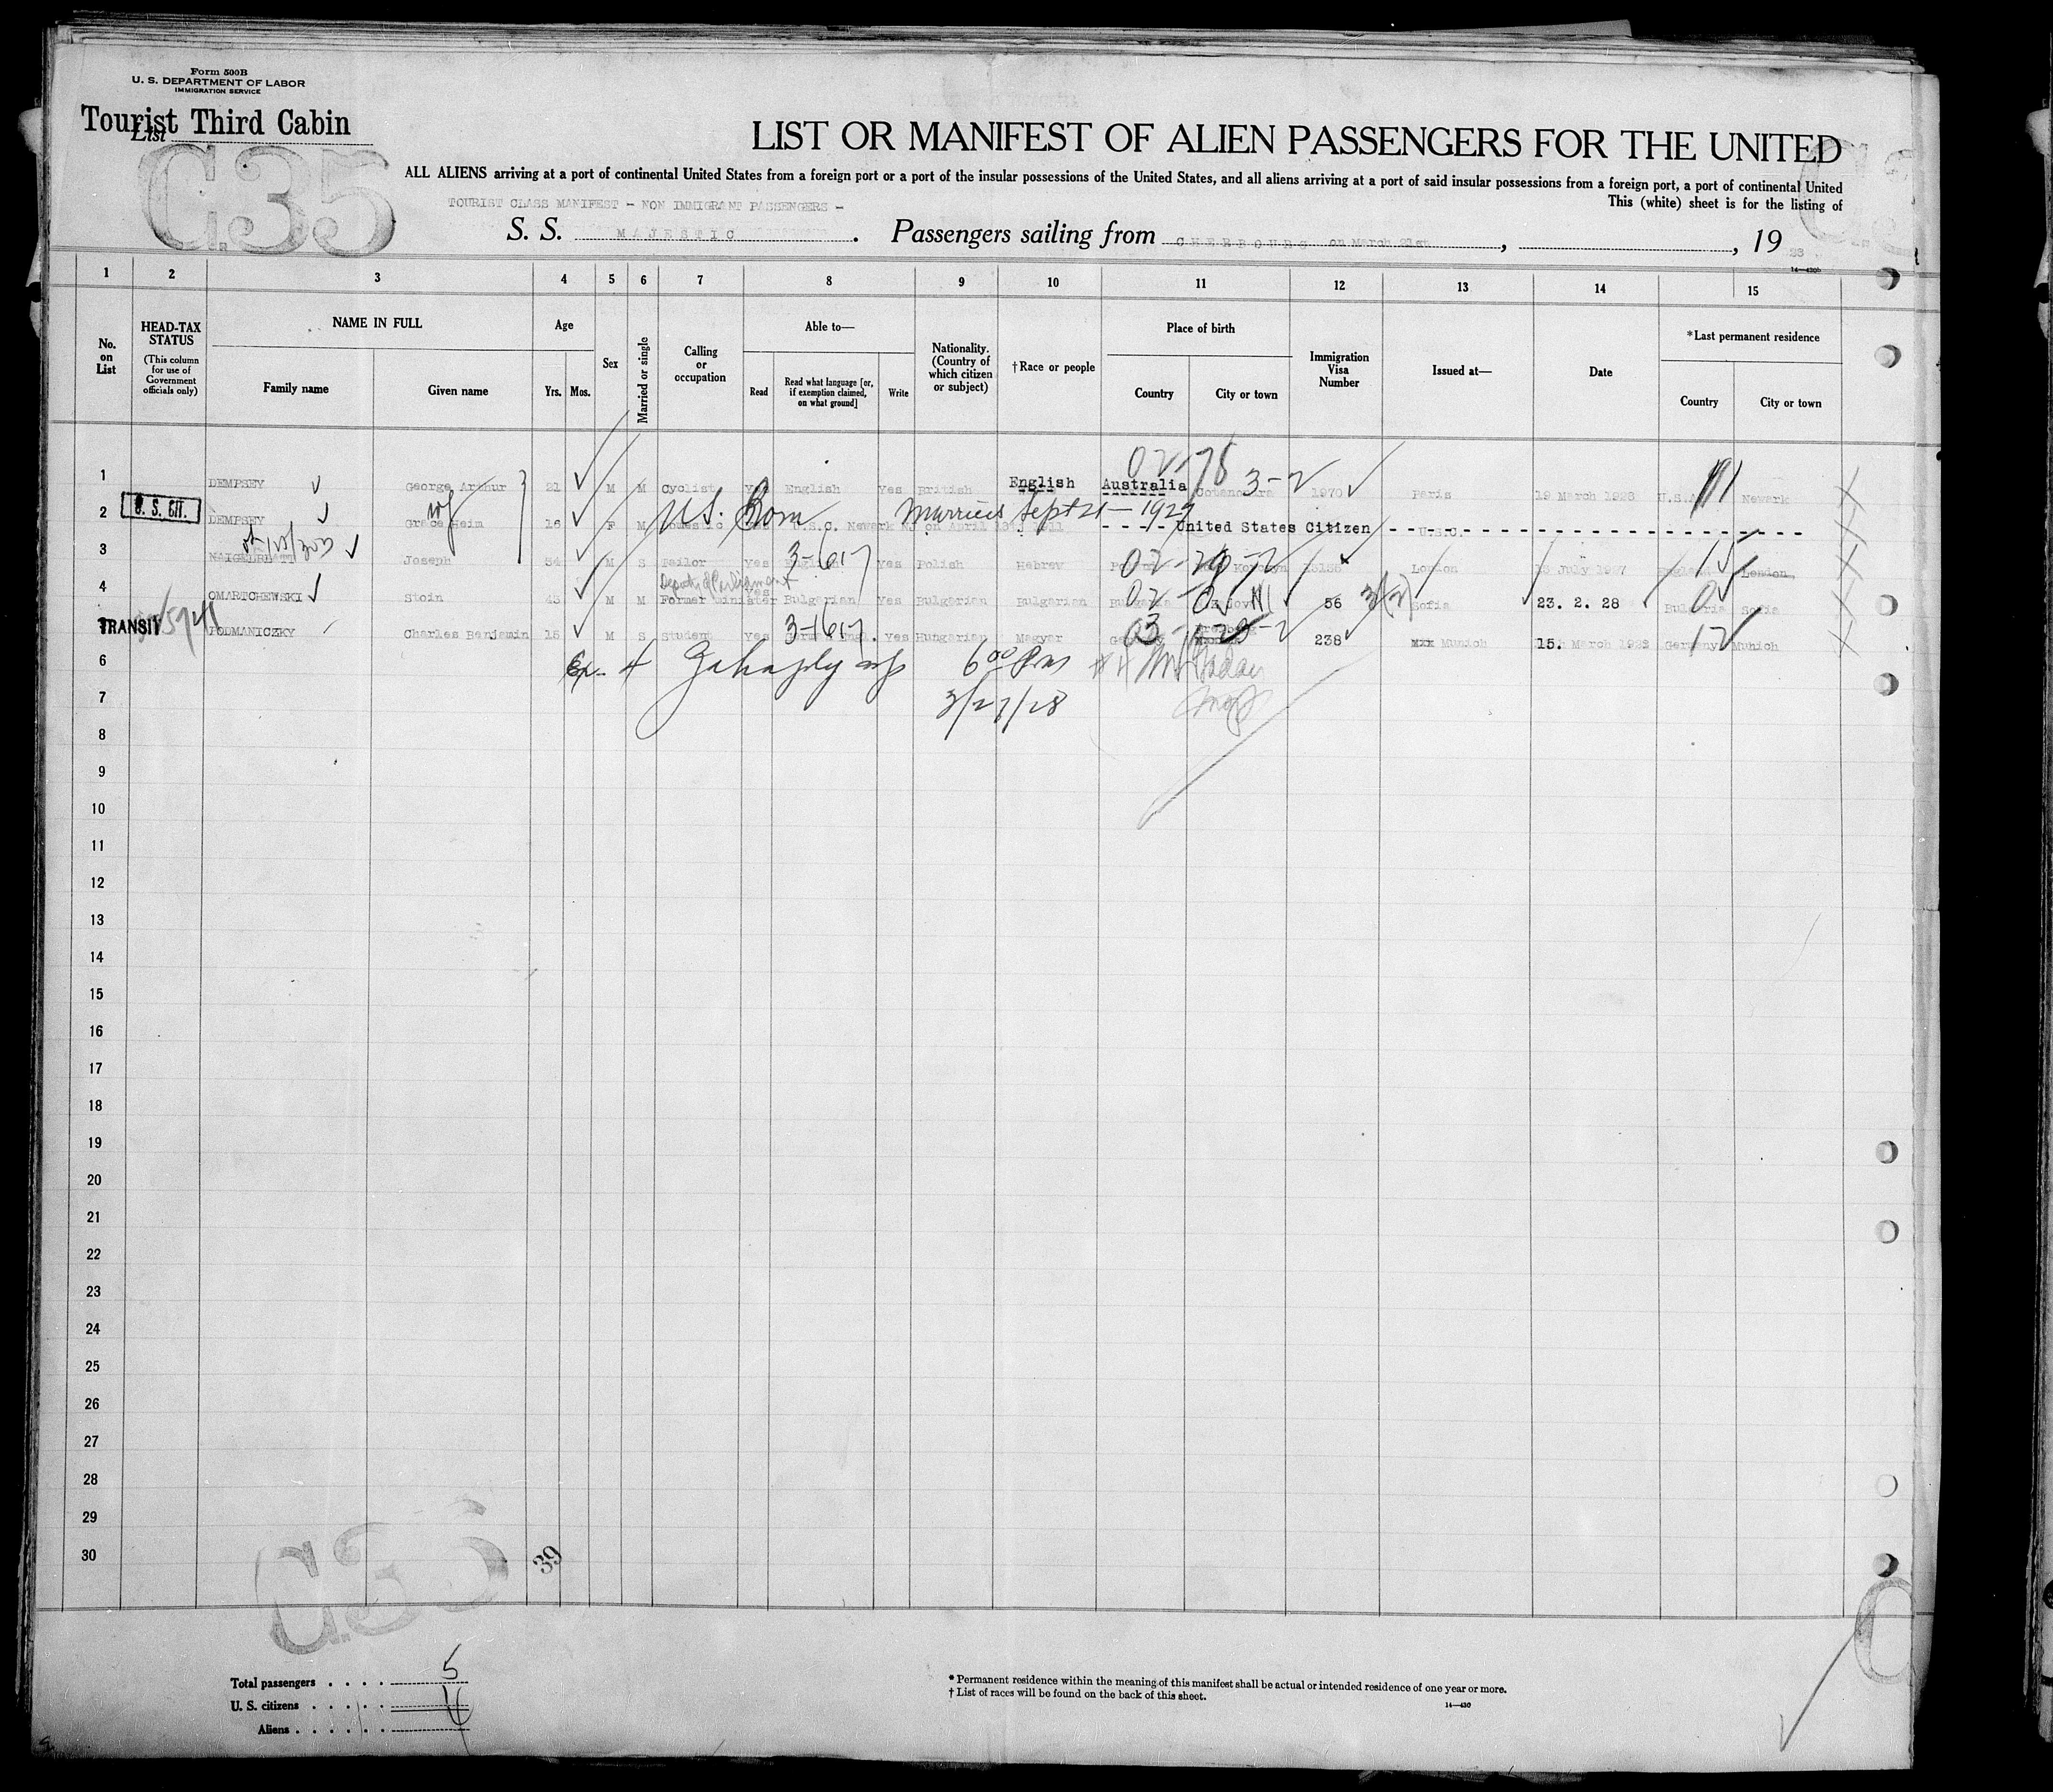 Form 500B
U. S. DEPARTMENT OF LABOR
IMMIGRATION SERVICE
Tourist Third Cabin
List
C.35
LIST OR MANIFEST OF ALIEN PASSENGERS FOR THE UNITED
ALL ALIENS arriving at a port of continental United States from a foreign port or a port of the insular possessions of the United States, and all aliens arriving at a port of said insular possessions from a foreign port, a port of continental United
This (white) sheet is for the listing of
TOURIST CLASS MANIFEST - NON IMMIGRANT PASSENGERS -
S. S. MAJESTIC. Passengers sailing from CHERBOURG on March 21st, , 19 28
14—430b
1 2 3 4 5 6 7 8 9 10 11 12 13 14 15
No. on List
HEAD-TAX STATUS (This column for use of Government officials only)
NAME IN FULL
Family name Given name
Age
Yrs. Mos.
Sex
Married or single
Calling or occupation
Able to—
Read Read what language [or, if exemption claimed, on what ground] Write
Nationality. (Country of which citizen or subject)
†Race or people
Place of birth
Country City or town
Immigration Visa Number
Issued at—
Date
*Last permanent residence
Country City or town
02-78 3-2
1 DEMPSEY George Arthur 21 M M Cyclist Yes English Yes British English Australia 1970 Paris 19 March 1928 U.S.A. Newark
wf U.S. Born Married Sept 21-1927
2 U.S. CIT. DEMPSEY Grace Heim 16 F M Domestic U.S.C. Newark NJ on April 1911 - - - - United States Citizen - - U.S.C. - -
3-617
3 Joseph 54 M S Tailor Yes English Yes Polish Hebrew London 18 July 1927 England London
Deputy of Parliament
4 OMARTCHEWSKI Stoin 43 M M Former minister Yes Bulgarian Yes Bulgarian Bulgarian Bulgaria 56 Sofia 23. 2. 28 Bulgaria Sofia
3-1617
5 TRANSIT PODMANICZKY Charles Benjamin 15 M S Student Yes Yes Hungarian Magyar 238 Munich 15. March 1928 Germany Munich
6 6⁰⁰ Pm
7 3/27/28
8
9
10
11
12
13
14
15
16
17
18
19
20
21
22
23
24
25
26
27
28
29
30
39
C.35
Total passengers . . . . 5
U. S. citizens . . . . .
Aliens . . . . . . 4
* Permanent residence within the meaning of this manifest shall be actual or intended residence of one year or more.
† List of races will be found on the back of this sheet.
14—430